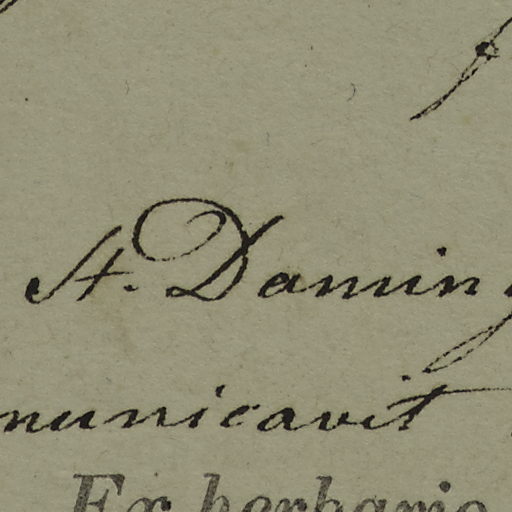 St. Doming
municavit
Ex herbario